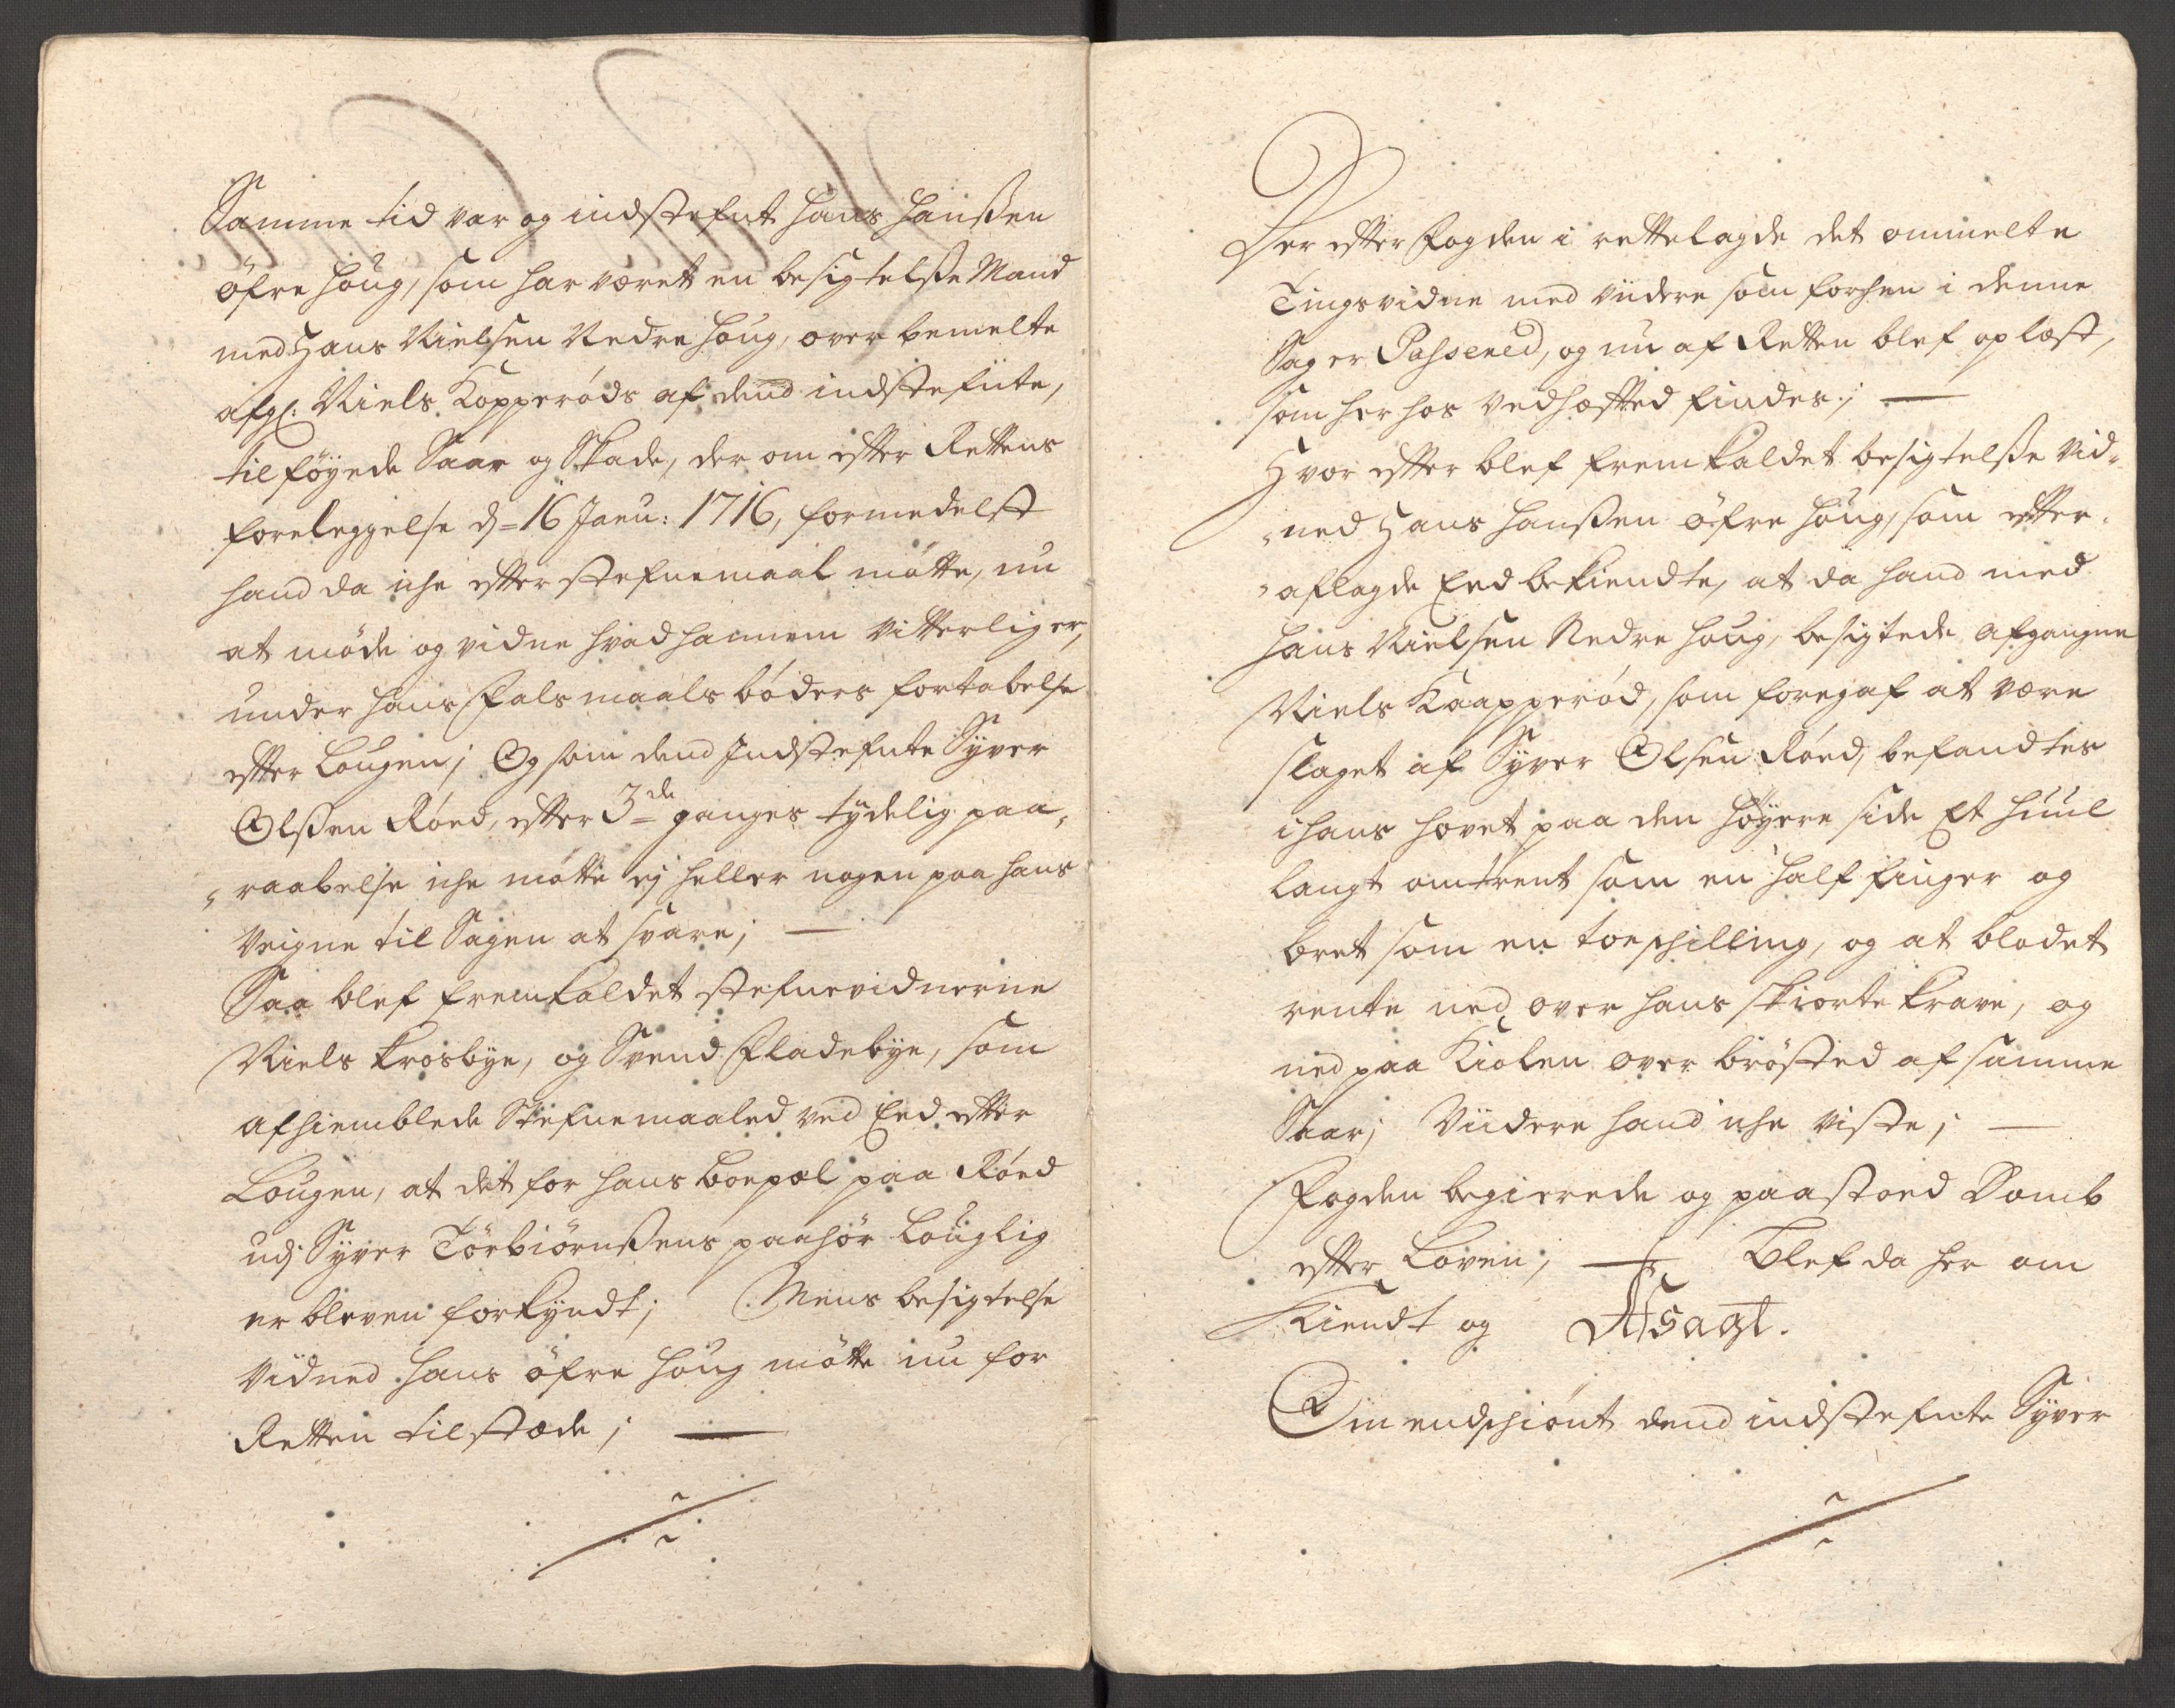 Samme tid var og indstefnt Hans Hanßen
öfre Houg, som har veret en besigtelße Mand
med Hans Nielsen Nedre Houg, over bemelte
afg: Niels Kopperöds af dend indstefnte,
tilföyede Saar og Skade, der om efter Rettens
foreleggelse d= 16 Janu: 1716, formedelst
hand da iche efter stefnemaal mötte, nu
at möde og vidne hvad hannem vitterlig er,
under hans Falsmaals böders fortabelse
efter Lougen; Og som dend Indstefnte Syver
Olßen Röed, efter 3de ganges tydelig paa-
raabelse iche mötte ej heller nogen paa hans
Veigne til Sagen at svare; —
Saa blef fremkaldet stefnevidnerne
Niels Krosbye, og Svend Fladebye, som
afhiemblede Stefnemaaled ved Eed efter
Lougen, at det for hans boepæl paa Röed
udj Syver Törbiörnßens paahör Louglig
er bleven forkyndt; Mens besigtelse
Vidned Hans öfre Houg mötte nu for
Retten tilstæde; —
Der efter Fogden i rettelagde det ommelte
Tingsvidne med viidere som forhen i denne
Sag er Passered, og nu af Retten blef oplæst,
som her hos vedhæfted findes; —
Hvor efter blef fremkaldet besigtelße Vid-
ned Hans Hanßen öfre Houg, som efter
aflagde Eed bekiendte, at da hand med
Hans Nielsen Nedre Houg, besigtede afgangne
Niels Kaapperöd, som foregaf at være
slaget af Syver Olsen Röed, befandtes
i hans hovet paa den höyere side Et Huul
langt omtrent som en half finger og
bret som en toeschilling, og at blodet
rente ned over hans skiorte krave, og
ned paa Kiolen over brösted af samme
Saar; Viidere hand iche viste; —
Fogden begierede og paastoed Domb
efter Loven; — Blef da her om
Kiendt og Afsagt.
Om endschiönt dend indstefnte Syver